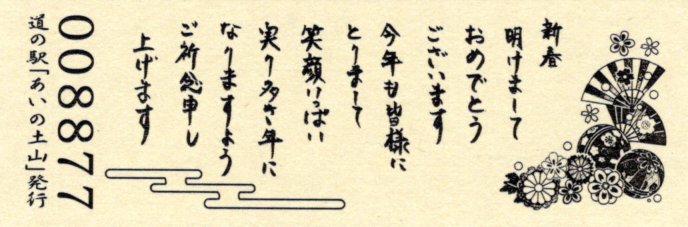 新春
明けまして
おめでとう
ございます
今年も皆様に
とりまして
笑顔いっぱい
実り多き年に
なりますよう
ご祈念申し
上げます
008877
道の駅「あいの土山」発行